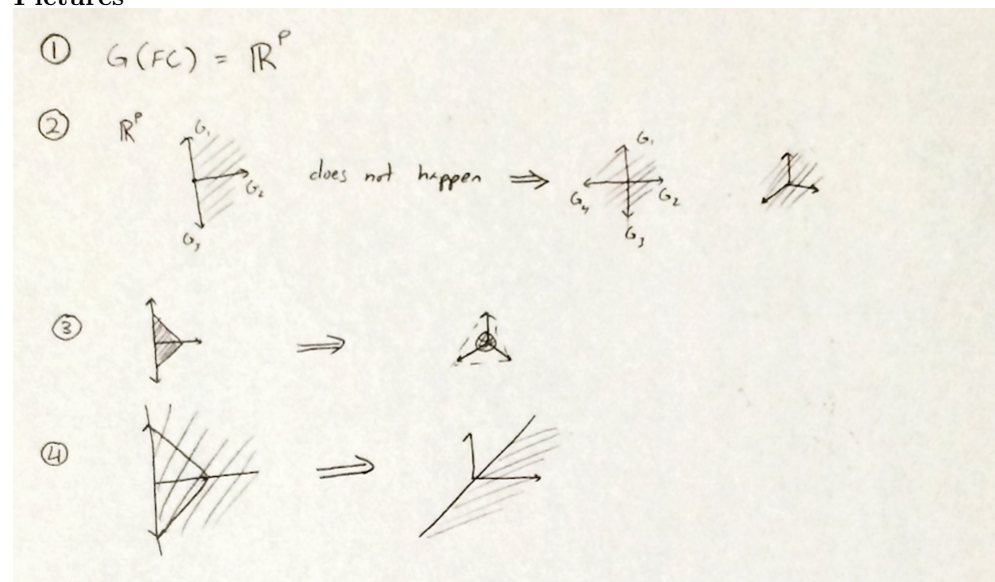 Pictures
① G(FC) = ℝᴾ
② ℝᴾ G₁ G₂ G₃ does not happen ⇒ G₁ G₂ G₃ G₄
③ ⇒
④ ⇒